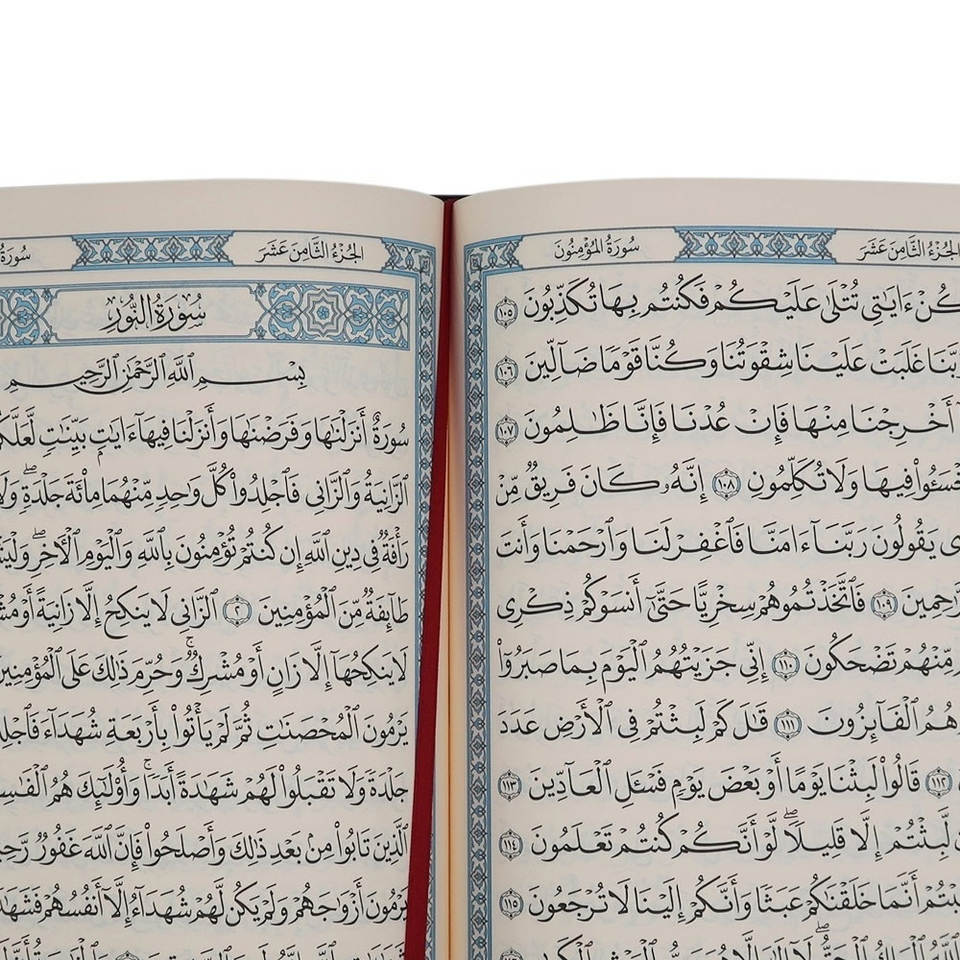 سُورَةُ المُؤْمِنُونَ
الجُزْءُ الثَّامِنَ عَشَرَ
ءَايَٰتِى تُتْلَىٰ عَلَيْكُمْ فَكُنتُم بِهَا تُكَذِّبُونَ ١٠٥
غَلَبَتْ عَلَيْنَا شِقْوَتُنَا وَكُنَّا قَوْمًا ضَآلِّينَ ١٠٦
أَخْرِجْنَا مِنْهَا فَإِنْ عُدْنَا فَإِنَّا ظَٰلِمُونَ ١٠٧
فِيهَا وَلَا تُكَلِّمُونِ ١٠٨ إِنَّهُۥ كَانَ فَرِيقٌ مِّنْ
يَقُولُونَ رَبَّنَآ ءَامَنَّا فَٱغْفِرْ لَنَا وَٱرْحَمْنَا وَأَنتَ
١٠٩ فَٱتَّخَذْتُمُوهُمْ سِخْرِيًّا حَتَّىٰٓ أَنسَوْكُمْ ذِكْرِى
مِّنْهُمْ تَضْحَكُونَ ١١٠ إِنِّى جَزَيْتُهُمُ ٱلْيَوْمَ بِمَا صَبَرُوٓا۟
هُمُ ٱلْفَآئِزُونَ ١١١ قَٰلَ كَمْ لَبِثْتُمْ فِى ٱلْأَرْضِ عَدَدَ
١١٢ قَالُوا۟ لَبِثْنَا يَوْمًا أَوْ بَعْضَ يَوْمٍ فَسْـَٔلِ ٱلْعَآدِّينَ ١١٣
لَّبِثْتُمْ إِلَّا قَلِيلًا ۖ لَّوْ أَنَّكُمْ كُنتُمْ تَعْلَمُونَ ١١٤
أَنَّمَا خَلَقْنَٰكُمْ عَبَثًا وَأَنَّكُمْ إِلَيْنَا لَا تُرْجَعُونَ ١١٥
الجُزْءُ الثَّامِنَ عَشَرَ
سُورَةُ
سُورَةُ النُّورِ
بِسْمِ ٱللَّهِ ٱلرَّحْمَٰنِ ٱلرَّحِيمِ
سُورَةٌ أَنزَلْنَٰهَا وَفَرَضْنَٰهَا وَأَنزَلْنَا فِيهَآ ءَايَٰتٍۭ بَيِّنَٰتٍ
ٱلزَّانِيَةُ وَٱلزَّانِى فَٱجْلِدُوا۟ كُلَّ وَٰحِدٍ مِّنْهُمَا مِا۟ئَةَ جَلْدَةٍ ۖ
رَأْفَةٌ فِى دِينِ ٱللَّهِ إِن كُنتُمْ تُؤْمِنُونَ بِٱللَّهِ وَٱلْيَوْمِ ٱلْءَاخِرِ ۖ
طَآئِفَةٌ مِّنَ ٱلْمُؤْمِنِينَ ٢ ٱلزَّانِى لَا يَنكِحُ إِلَّا زَانِيَةً أَوْ
لَا يَنكِحُهَآ إِلَّا زَانٍ أَوْ مُشْرِكٌ ۚ وَحُرِّمَ ذَٰلِكَ عَلَى ٱلْمُؤْمِنِينَ
يَرْمُونَ ٱلْمُحْصَنَٰتِ ثُمَّ لَمْ يَأْتُوا۟ بِأَرْبَعَةِ شُهَدَآءَ
جَلْدَةً وَلَا تَقْبَلُوا۟ لَهُمْ شَهَٰدَةً أَبَدًا ۚ وَأُو۟لَٰٓئِكَ هُمُ
ٱلَّذِينَ تَابُوا۟ مِنۢ بَعْدِ ذَٰلِكَ وَأَصْلَحُوا۟ فَإِنَّ ٱللَّهَ غَفُورٌ
يَرْمُونَ أَزْوَٰجَهُمْ وَلَمْ يَكُن لَّهُمْ شُهَدَآءُ إِلَّآ أَنفُسُهُمْ